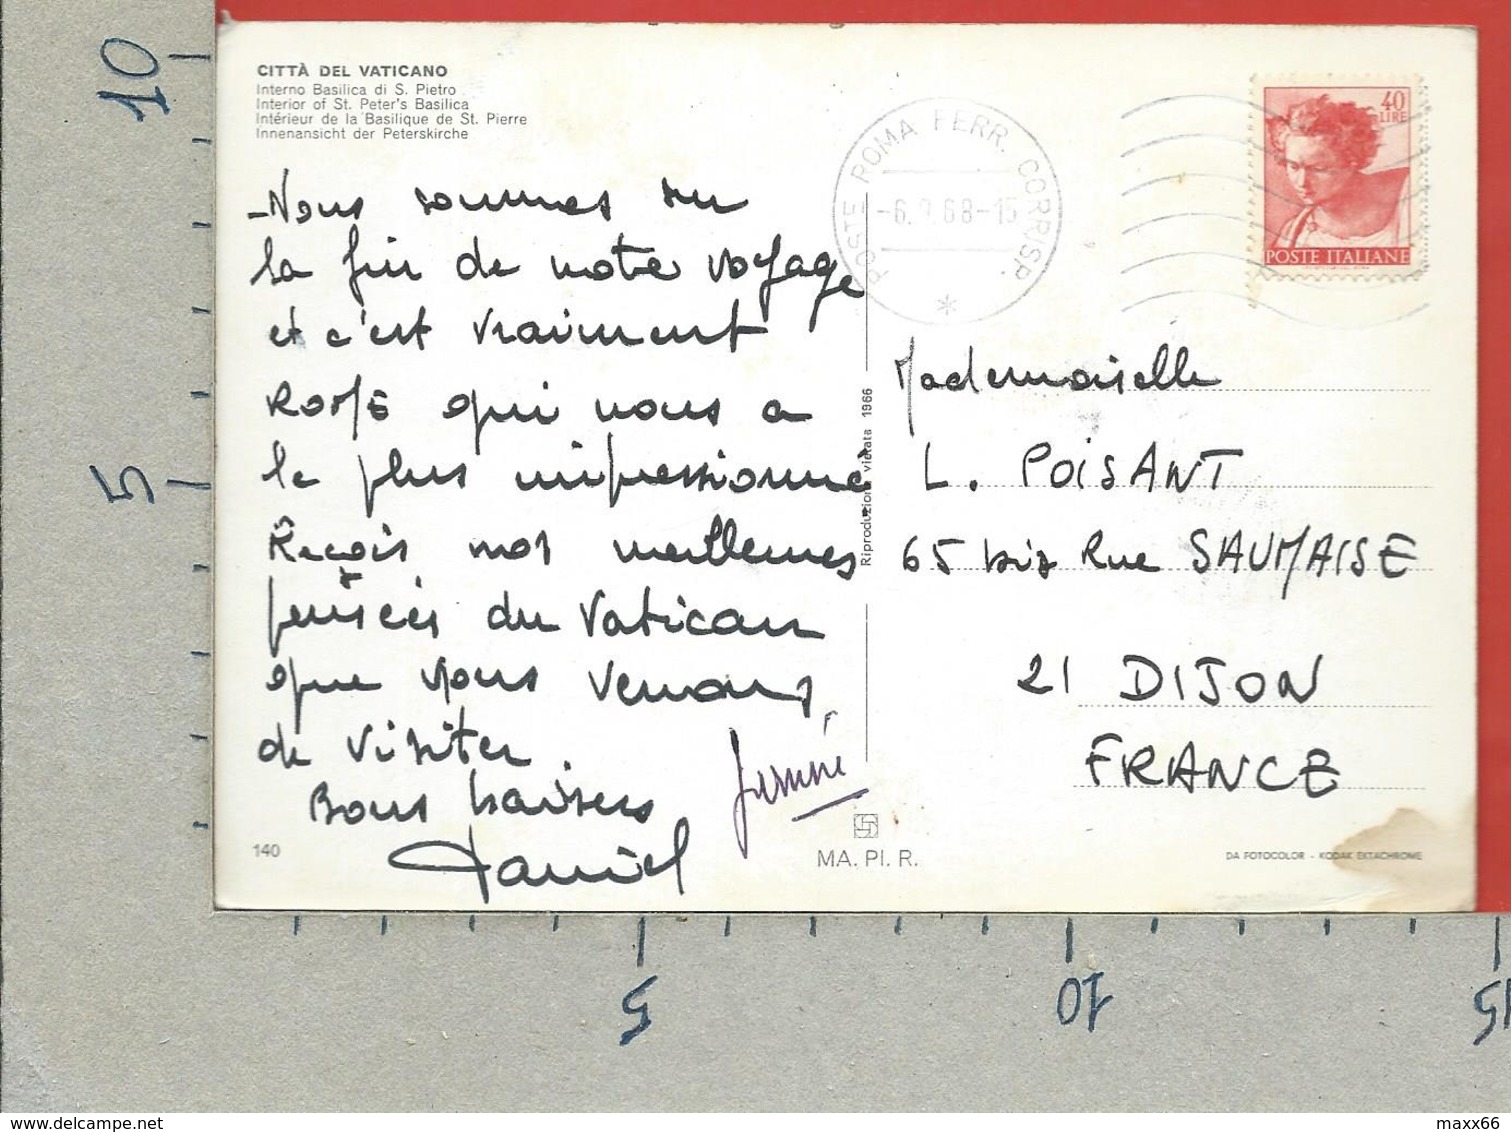 CITTÀ DEL VATICANO
Interno Basilica di S. Pietro
Interior of St. Peter's Basilica
Intérieur de la Basilique de St. Pierre
Innenansicht der Peterskirche
-Nous sommes sur
la fin de notre voyage
et c'est vraiment
ROME qui nous a
le plus impressionné
Reçois nos meilleures
pensées du Vatican
que nous venons
de visiter.
Bons baisers
Daniel
140
POSTE ROMA FERR. CORRISP.
-6.9.68-15
*
40
LIRE
POSTE ITALIANE
Mademoiselle
L. POISANT
65 bis Rue SAUMAISE
21 DIJON
FRANCE
Riproduzione vietata 1966
MA. PI. R.
DA FOTOCOLOR - KODAK EKTACHROME
10
5
5
10
15
delcampe.net
maxx66